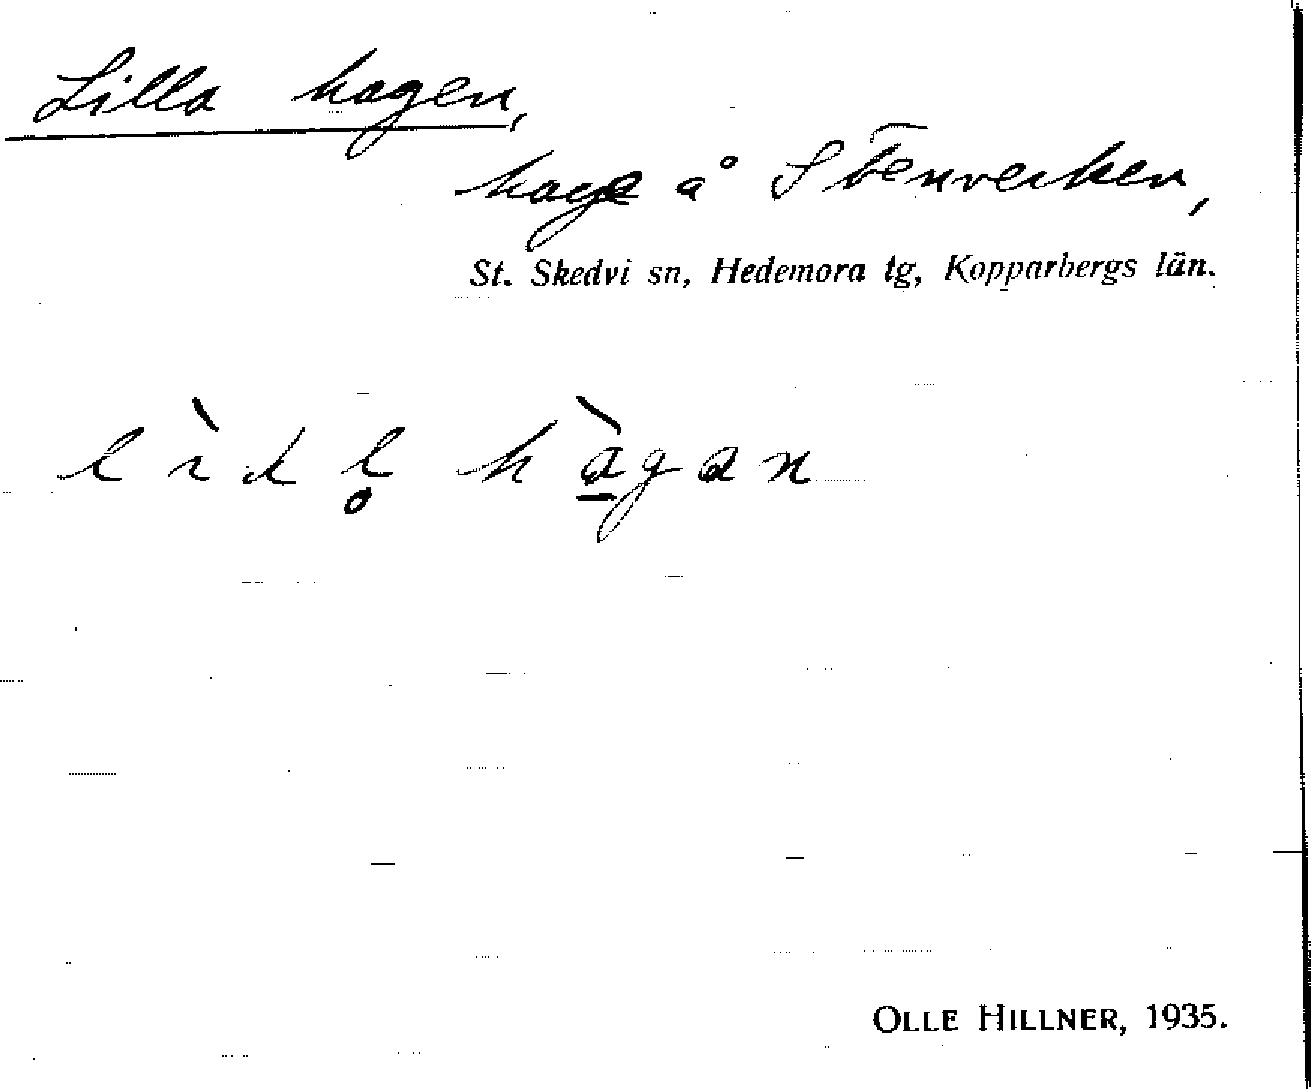 Lilla hagen,
hage å Stenverken,
St. Skedvi sn, Hedemora tg, Kopparbergs län.
hagan
OLLE HILLNER, 1935.